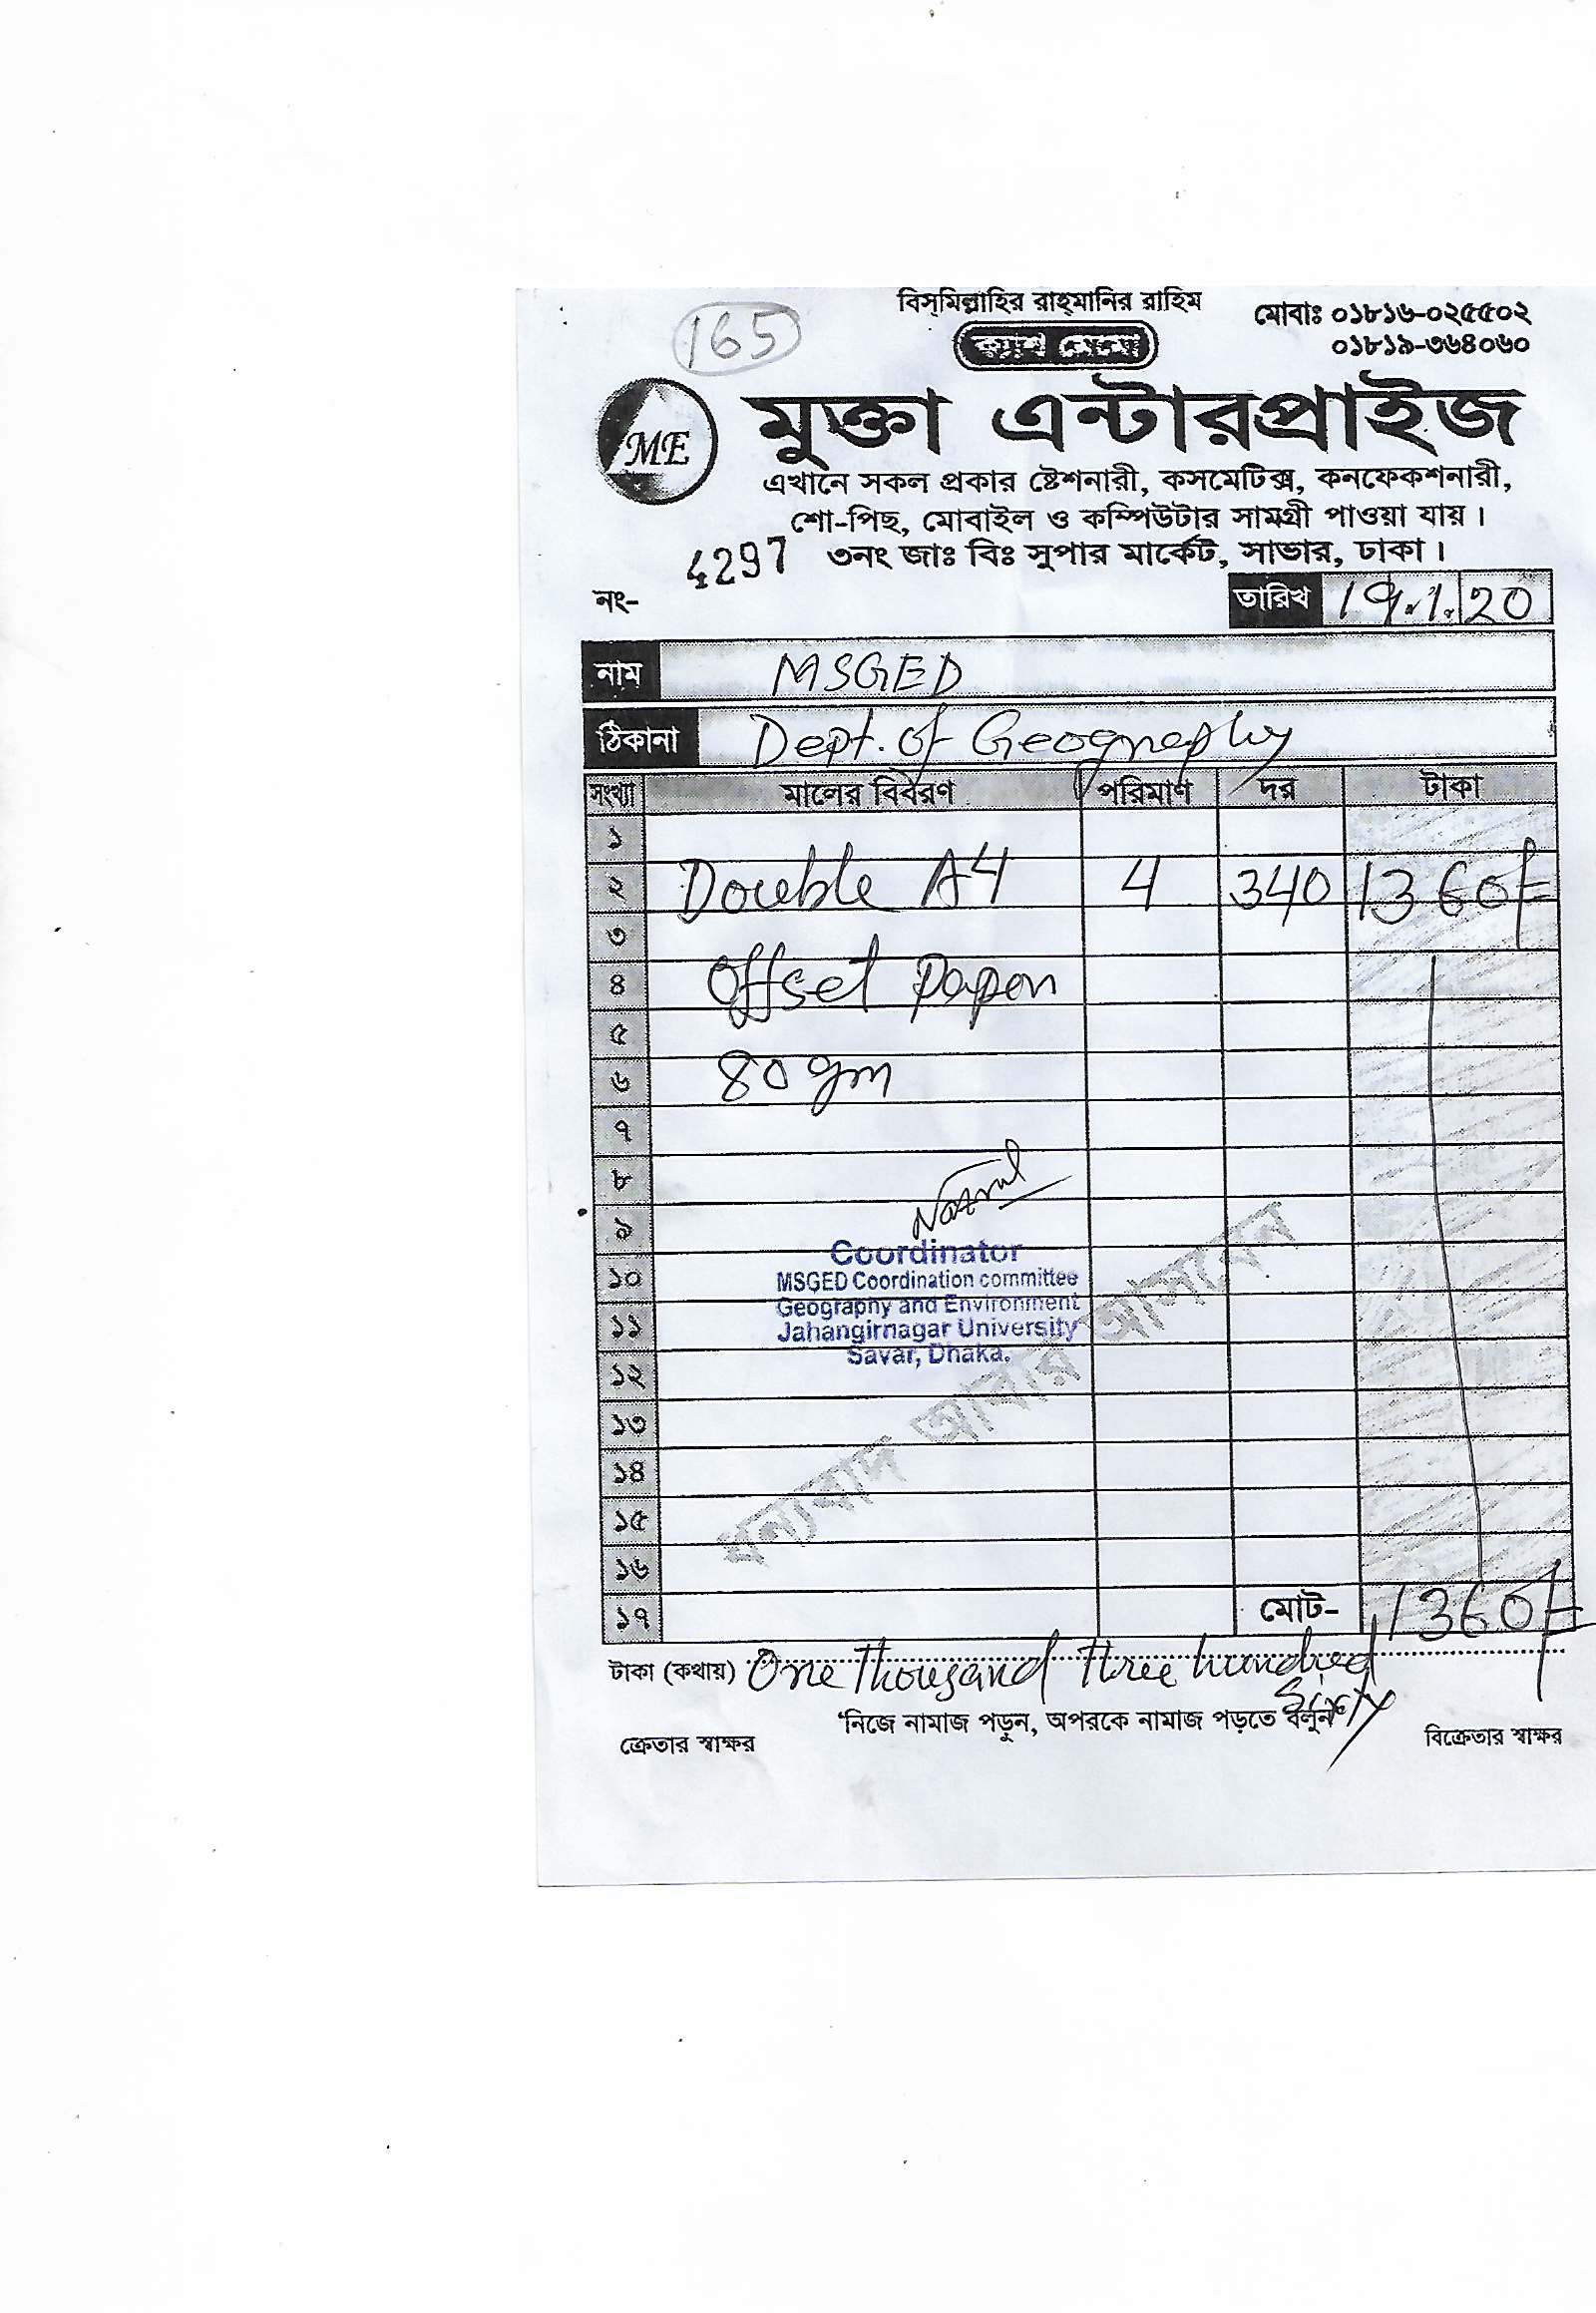 বিস্‌মিল্লাহির রাহ্‌মানির রাহিম
165
ক্যাশ মেমো
মোবাঃ ০১৮১৬-০২৫৫০২
০১৮১৯-৩৬৪০৬০
ME
মুক্তা এন্টারপ্রাইজ
এখানে সকল প্রকার ষ্টেশনারী, কসমেটিক্স, কনফেকশনারী,
শো-পিছ, মোবাইল ও কম্পিউটার সামগ্রী পাওয়া যায়।
৩নং জাঃ বিঃ সুপার মার্কেট, সাভার, ঢাকা।
নং- 4297
তারিখ 19.1.20
নাম MSGED
ঠিকানা Dept. of Geography
সংখ্যা মালের বিবরণ পরিমাণ দর টাকা
১
২ Double A4 4 340 1360/=
৩
৪ Offset Paper
৫
৬ 80 gm
৭
৮
৯
Coordinator
১০ MSGED Coordination committee
Geography and Environment
১১ Jahangirnagar University
Savar, Dhaka.
১২
১৩
১৪
১৫
১৬
ধন্যবাদ আবার আসবেন
১৭ মোট- 1360/=
টাকা (কথায়) One Thousand Three hundred
Sixty
‘নিজে নামাজ পড়ুন, অপরকে নামাজ পড়তে বলুন’
ক্রেতার স্বাক্ষর বিক্রেতার স্বাক্ষর